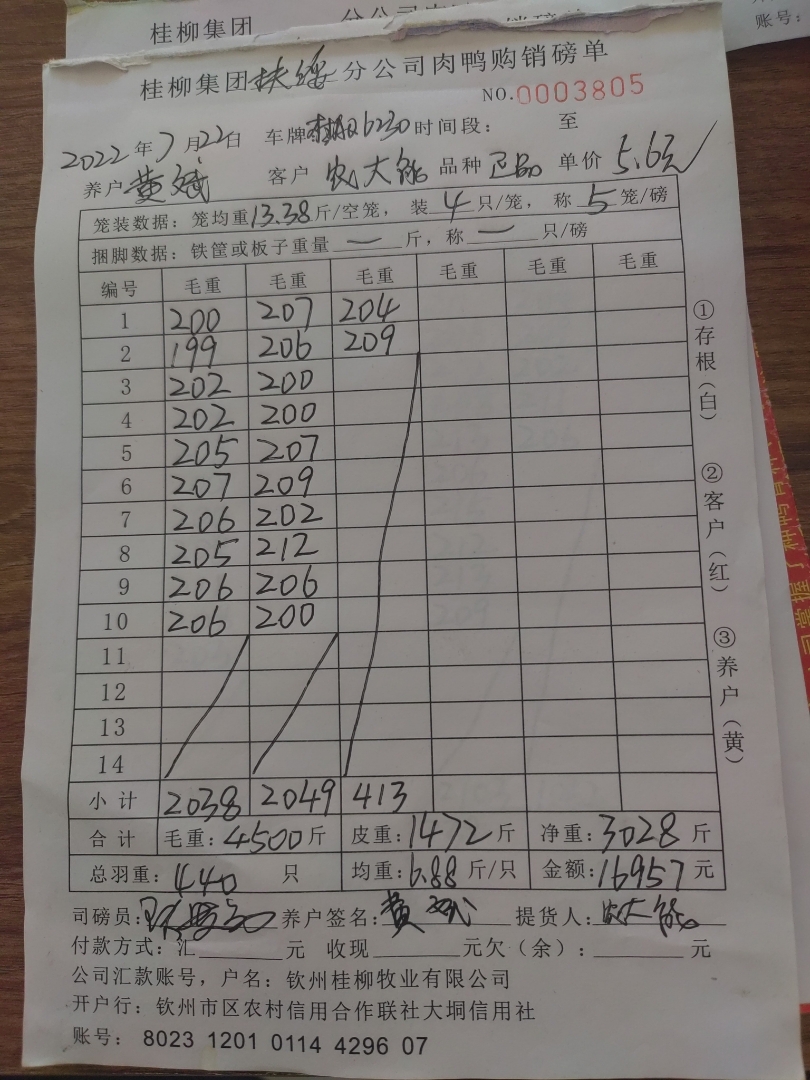 桂柳集团
账号：
桂柳集团扶绥分公司肉鸭购销磅单
NO.0003805
2022年7月22日 车牌 6230 时间段： 至
养户 黄斌 客户 农大 品种 正品 单价 5.6元
笼装数据：笼均重13.38斤/空笼，装4只/笼，称5笼/磅
捆脚数据：铁筐或板子重量一斤，称一只/磅
编号 毛重 毛重 毛重 毛重 毛重 毛重
1 200 207 204
2 199 206 209
3 202 200
4 202 200
5 205 207
6 207 209
7 206 202
8 205 212
9 206 206
10 206 200
11
12
13
14
小计 2038 2049 413
合计 毛重：4500斤 皮重：1472斤 净重：3028斤
总羽重：440只 均重：6.88斤/只 金额：16957元
司磅员： 养户签名：黄斌 提货人：农大
付款方式：汇 元 收现 元欠（余）： 元
公司汇款账号，户名：钦州桂柳牧业有限公司
开户行：钦州市区农村信用合作联社大垌信用社
账号：8023 1201 0114 4296 07
①存根（白）
②客户（红）
③养户（黄）